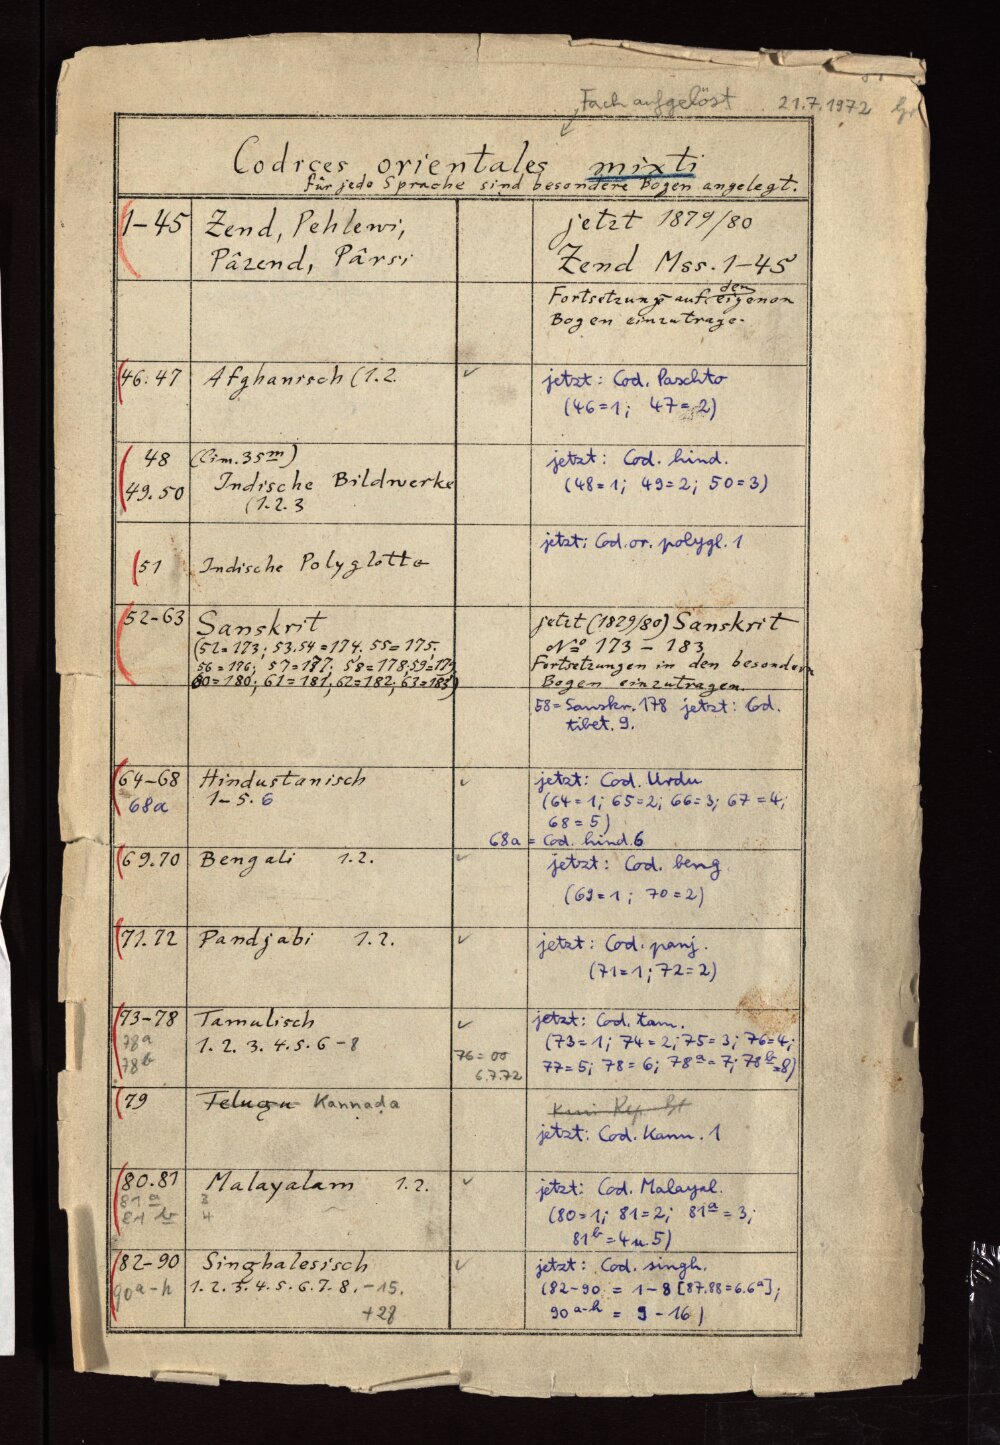 Fach aufgelöst 21.7.1972
Codices orientales mixti
für jede Sprache sind besondere Bogen angelegt.
1-45 Zend, Pehlewi, jetzt 1879/80
Pâzend, Pârsi Zend Mss. 1-45
den
Fortsetzung auf eigenen
Bogen einzutrage.
46.47 Afghanisch (1.2. ✓ jetzt: Cod. Paschto
(46=1; 47=2)
48 (Cim. 35m) jetzt: Cod. hind.
49.50 Indische Bildwerke (48=1; 49=2; 50=3)
(1.2.3
jetzt: Cod. or. polygl. 1
51 Indische Polyglotte
52-63 Sanskrit jetzt (1879/80) Sanskrit
(52=173; 53.54=174. 55=175. No 173-183
56=176; 57=177; 58=178; 59=179 Fortsetzungen in den besondern
60=180; 61=181; 62=182; 63=183) Bogen einzutragen.
58=Sanskr. 178 jetzt: Cod.
tibet. 9.
64-68 Hindustanisch ✓ jetzt: Cod. Urdu
68a 1-5. 6 (64=1; 65=2; 66=3; 67=4;
68=5)
68a = Cod. hind. 6
69.70 Bengali 1.2. ✓ jetzt: Cod. beng.
(69=1; 70=2)
71.72 Pandjabi 1.2. ✓ jetzt: Cod. panj.
(71=1; 72=2)
73-78 Tamulisch ✓ jetzt: Cod. tam.
78a 1. 2. 3. 4. 5. 6 -8 (73=1; 74=2; 75=3; 76=4;
78b 76=00 77=5; 78=6; 78a=7; 78b=8)
6.7.72
79 Telugu Kannaḍa
jetzt: Cod. Kann. 1
80.81 Malayalam 1.2. ✓ jetzt: Cod. Malayal.
81a 3 (80=1; 81=2; 81a=3;
81b 4 81b=4 u. 5)
82-90 Singhalesisch ✓ jetzt: Cod. singh.
90a-h 1. 2. 3. 4. 5. 6. 7. 8. -15. (82-90 = 1-8 [87.88=6.6a];
+28 90a-h = 9-16)